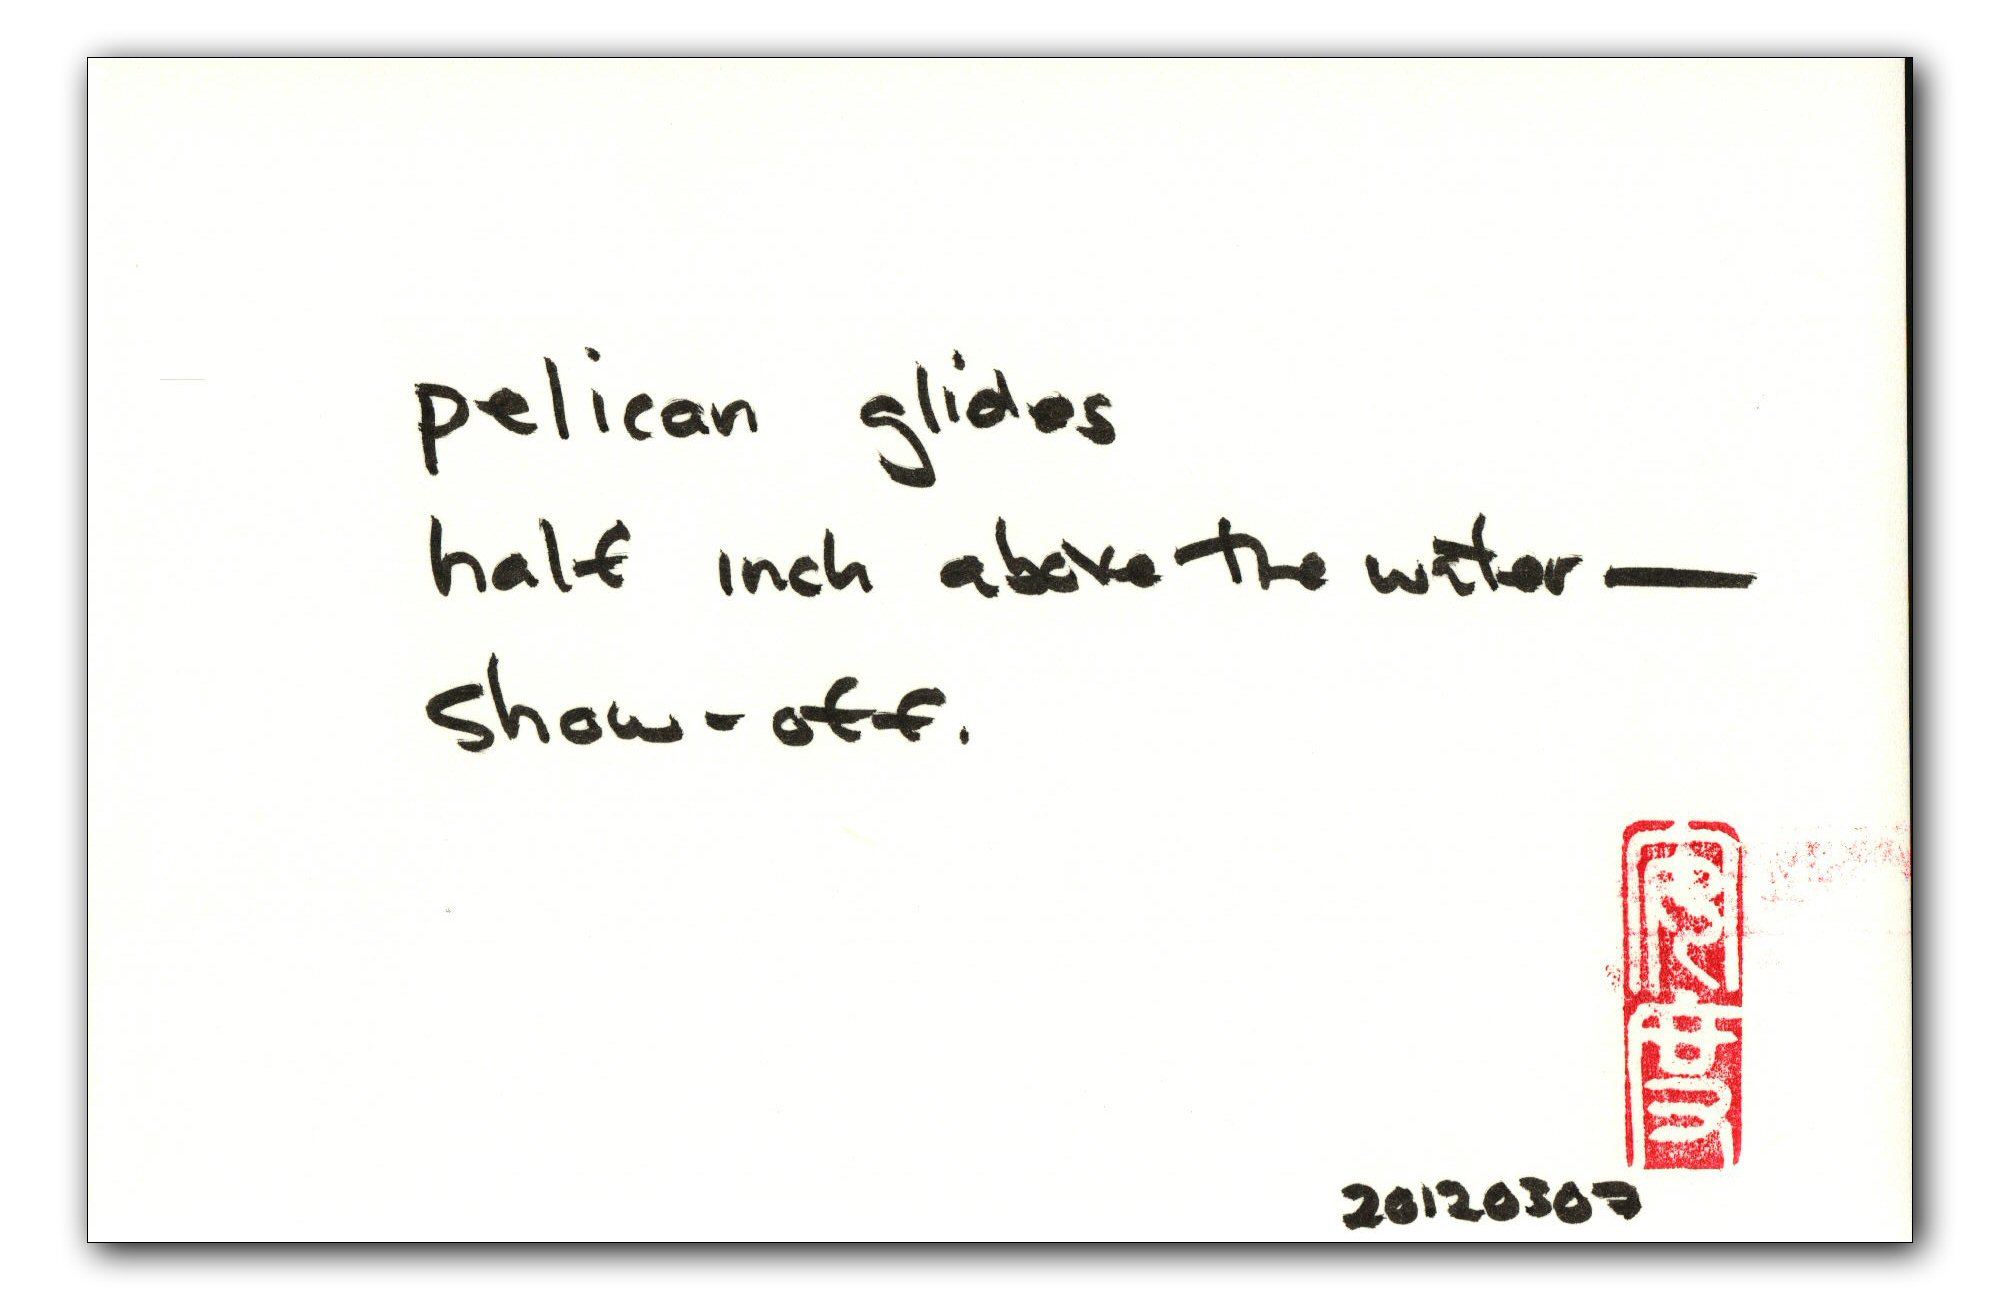 pelican glides
half inch above the water—
show-off.
20120307